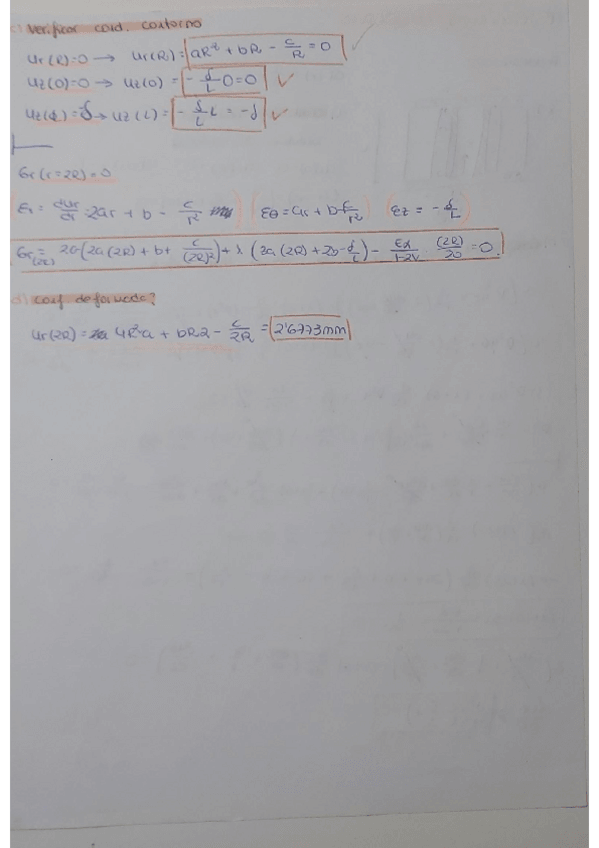 c) Verificar cond. contorno
ur(R)=0 → ur(R)= aR² + bR - c/R = 0 ✓
uz(0)=0 → uz(0)= -δ/L 0=0 ✓
uz(L)=δ → uz(L)= -δ/L L = -δ ✓
σr(r=2R)=0
εr = dur/dr = 2ar + b - c/r² εθ = ar + b c/r² εz = -δ/L
σr(2R) = 2G(2a(2R) + b + c/(2R)²) + λ (3a(2R) + 2b - δ/L) - Eα/1-2ν (2R)/20 = 0
d) conf deformada?
ur(2R) = 4R²a + bR2 - c/2R = 2'6773mm